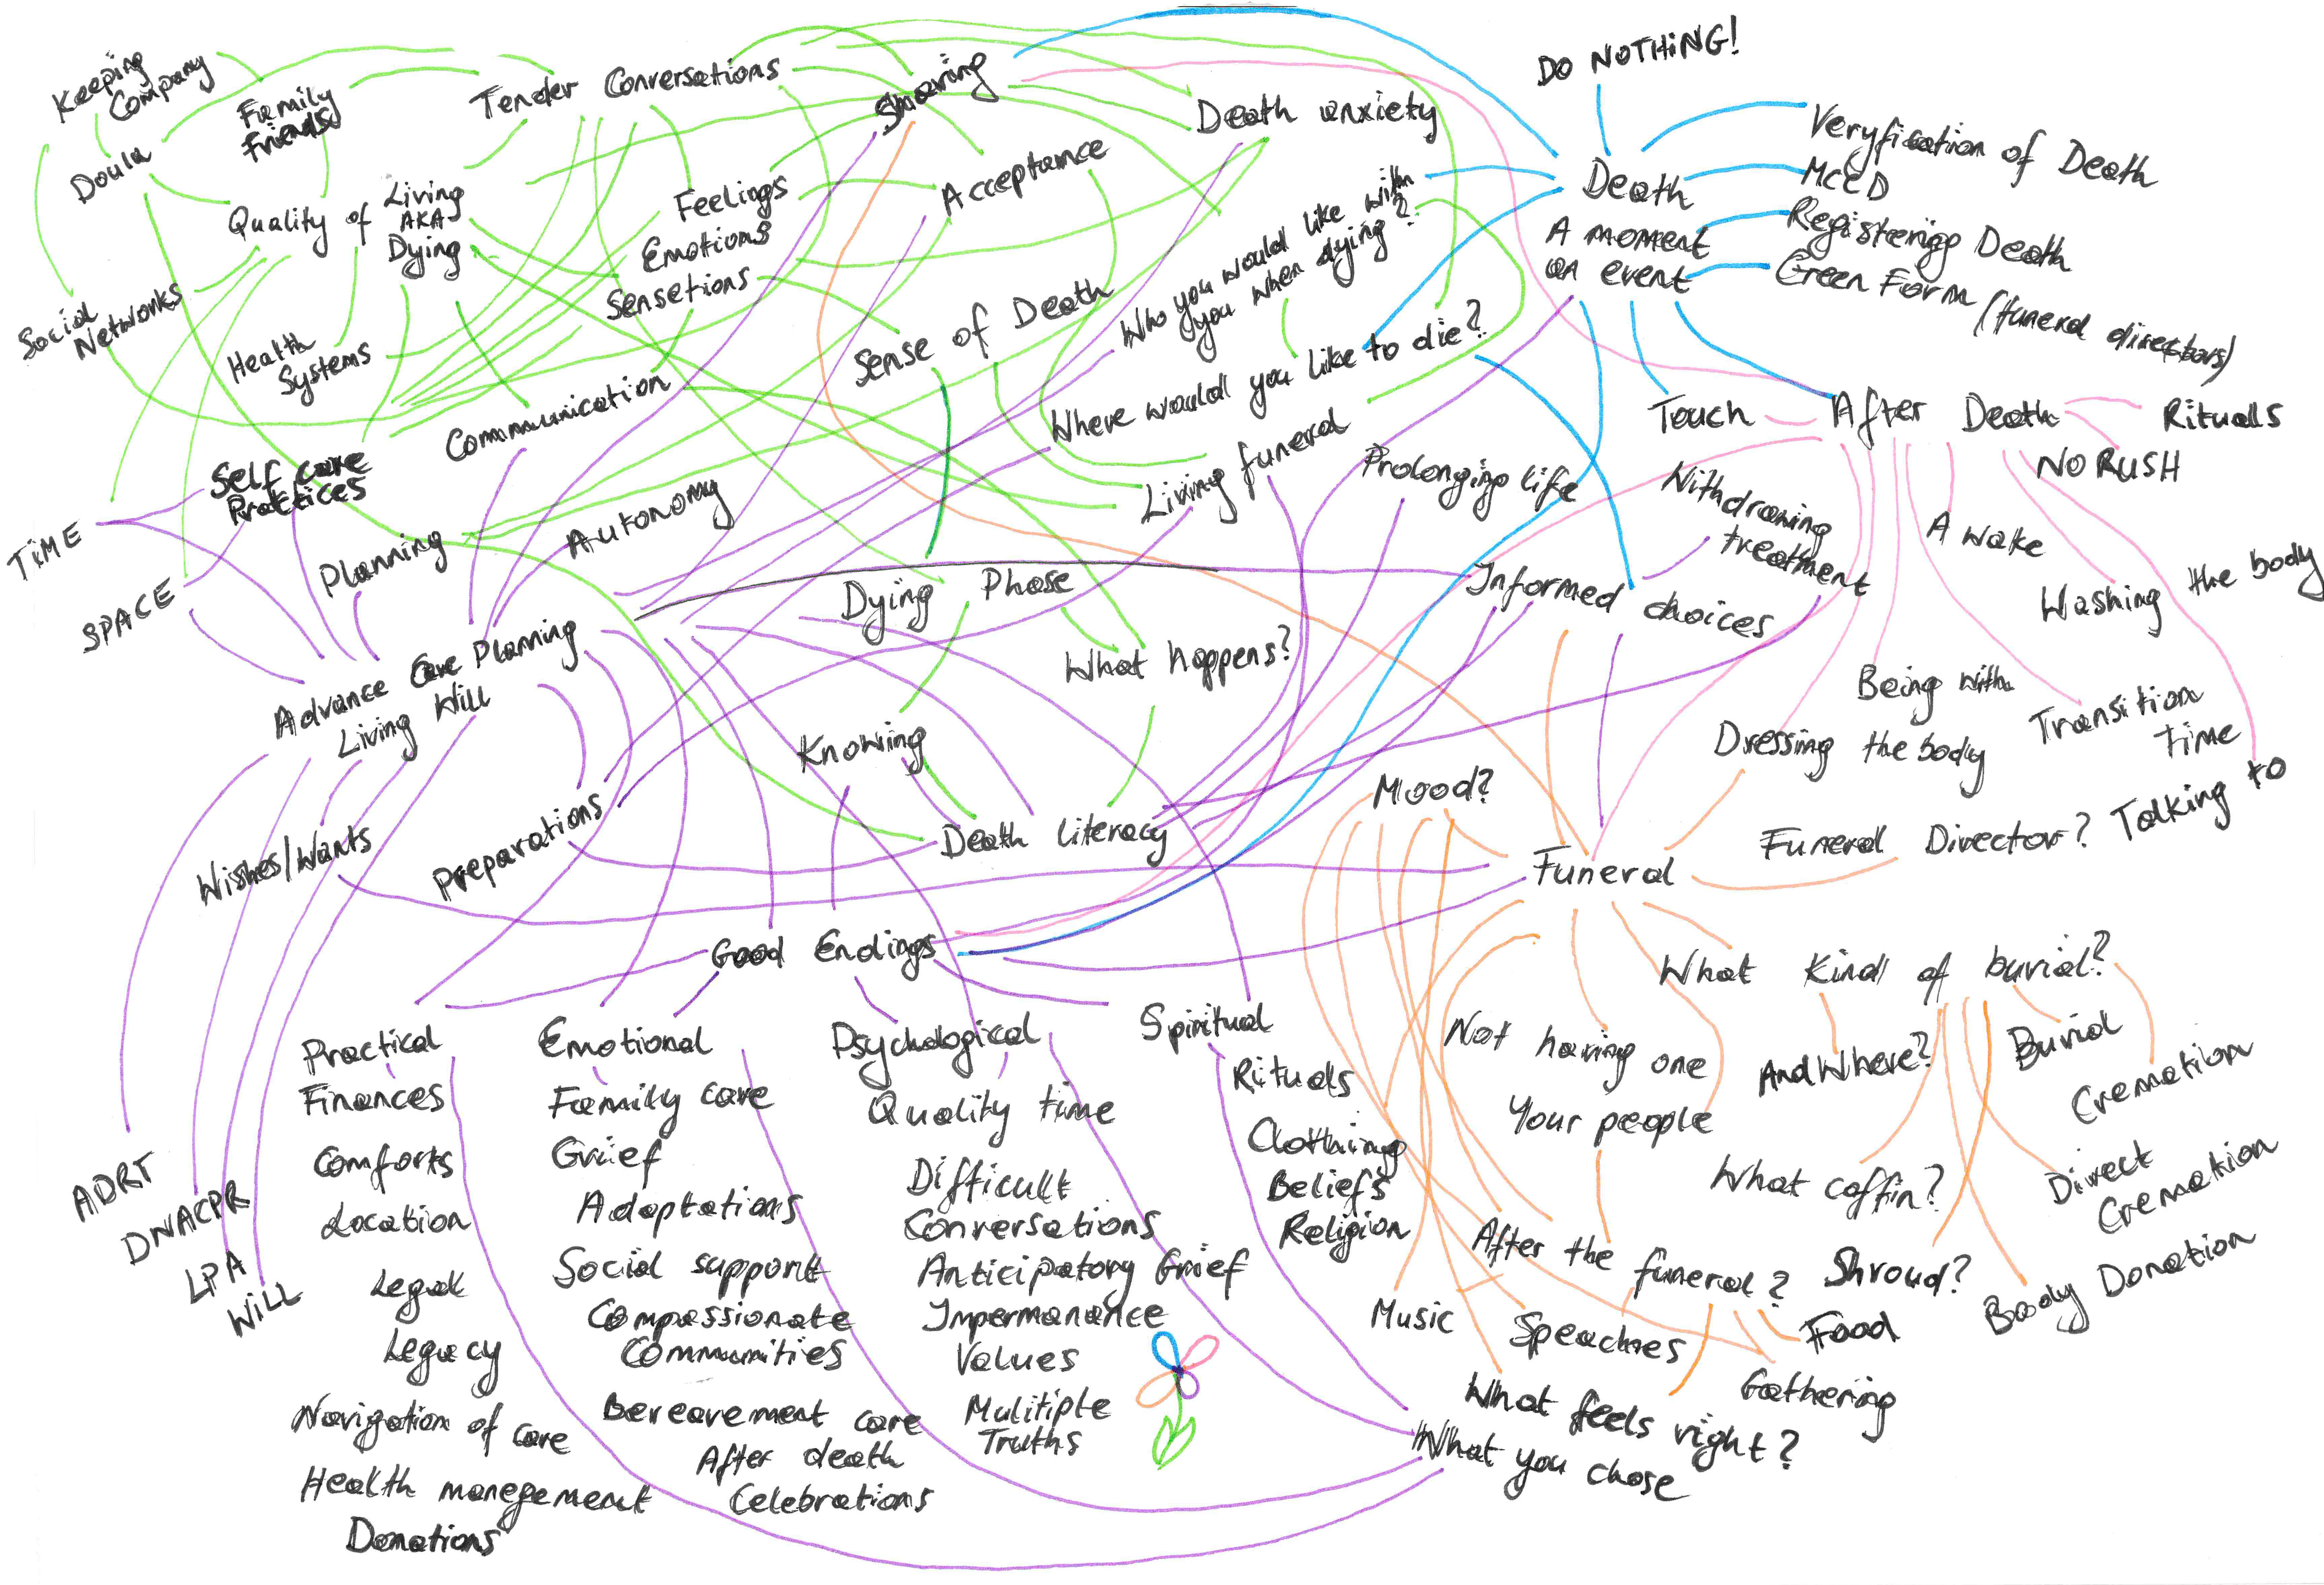 Keeping
Company
Family
Friends
Doula
Tender Conversations
Sharing
Death anxiety
DO NOTHING!
Veryfication of Death
MCCD
Registering Death
Green Form (funeral directors)
Death
A moment
an event
Quality of Living
AKA
Dying
Feelings
Emotions
Sensetions
Acceptance
Who you would like with
you when dying?
Where would you like to die?
Sense of Death
Social
Networks
Health
Systems
Communication
Living funeral
Prolonging life
Withdrawing
treatment
Touch
After Death
Rituals
NO RUSH
A wake
Washing the body
Self care
Practices
TIME
SPACE
Planning
Autonomy
Dying Phase
What happens?
Informed choices
Being with
Dressing the body
Transition
time
Talking to
Advance Care Planning
Living Will
Knowing
Death literacy
Preparations
Wishes/Wants
Mood?
Funeral
Funeral Director?
Good Endings
What kind of burial?
Not having one
And Where?
Burial
Cremation
Your people
What coffin?
Direct
Cremation
After the funeral?
Shroud?
Body Donation
Music
Speaches
Food
Gathering
What feels right?
What you chose
ADRT
DNACPR
LPA
WILL
Practical
Finances
Comforts
Location
Legal
Legacy
Navigation of care
Health manegement
Donations
Emotional
Family care
Grief
Adaptations
Social support
Compassionate
Communities
Bereavement care
After death
Celebrations
Psychological
Quality time
Difficult
Conversations
Anticipatory Grief
Impermanance
Values
Mulitiple
Truths
Spiritual
Rituals
Clothing
Beliefs
Religion